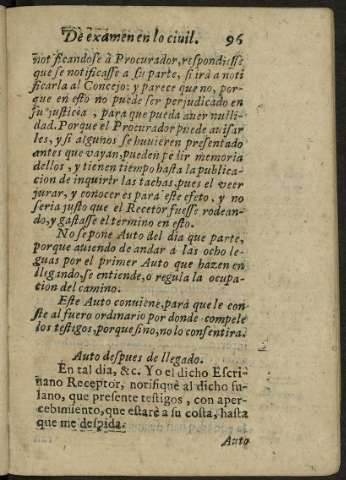 De examen en lo ciuil. 96
notificandose à Procurador, respondiesse
que se notificasse a su parte, si irà a noti
ficarla al Concejo: y parece que no, por-
que en esto no puede ser perjudicado en
su justicia, para que pueda auer nulli-
dad. Porque el Procurador puede auisar
les, y si algunos se huuieren presentado
antes que vayan, pueden pedir memoria
dellos, y tienen tiempo hasta la publica-
cion de inquirir las tachas, pues el veer
jurar, y conocer es para este efeto, y no
seria justo que el Recetor fuesse rodean-
do, y gastasse el termino en esto.
No se pone Auto del dia que parte,
porque auiendo de andar a las ocho le-
guas por el primer Auto que hazen en
llegando, se entiende, o regula la ocupa-
cion del camino.
Este Auto conuiene, para que le con-
ste al fuero ordinario por donde compele
los testigos, porque sino, no lo consentira.
Auto despues de llegado.
En tal dia, &c. Yo el dicho Escri-
uano Receptor, notifiquè al dicho fu-
lano, que presente testigos, con aper-
cebimiento, que estarè a su costa, hasta
que me despida.
Auto